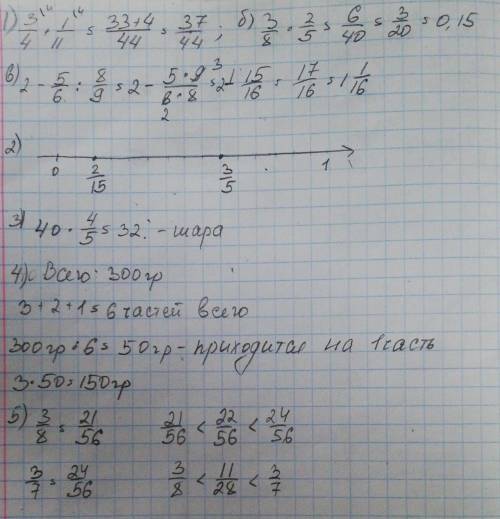 1) 3/4 + 1/11 = (33+4)/44 = 37/44 ; б) 3/8 · 2/5 = 6/40 = 3/20 = 0,15
в) 2 - 5/6 : 8/9 = 2 - (5·9)/(6·8) = 2 - 15/16 = 17/16 = 1 1/16
2)
0 2/15 3/5 1
3) 40 · 4/5 = 32 - шара
4) Всего: 300гр
3+2+1=6 частей всего
300гр : 6 = 50гр - приходится на 1 часть
3·50=150гр
5) 3/8 = 21/56 21/56 < 22/56 < 24/56
3/7 = 24/56 3/8 < 11/28 < 3/7